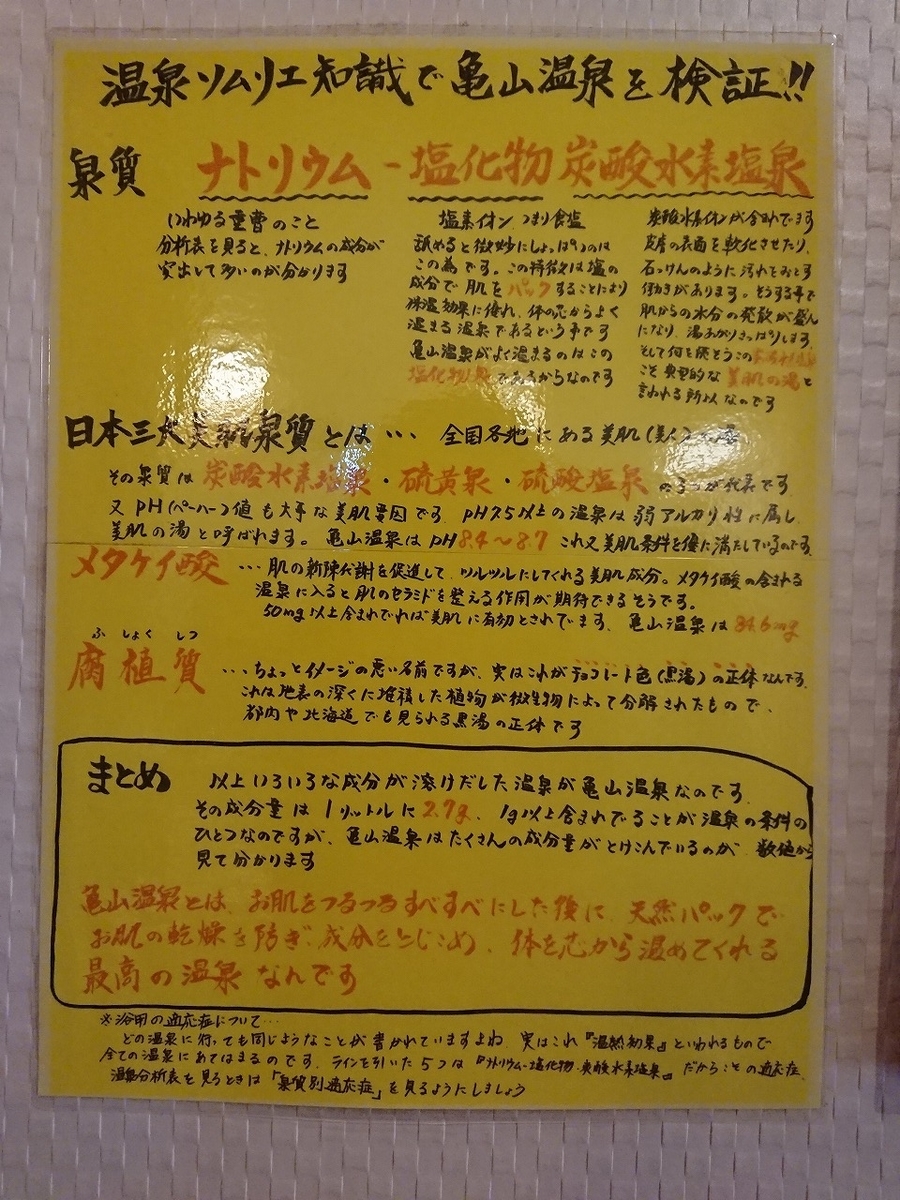 温泉ソムリエ知識で亀山温泉を検証!!
泉質 ナトリウム-塩化物炭酸水素塩泉
いわゆる重曹のこと
分析表を見ると、ナトリウムの成分が
突出して多いのが分かります
塩素イオン つまり食塩
舐めると微妙にしょっぱいのは
この為です。この特徴は塩の
成分で肌をパックすることにより
保温効果に優れ、体の芯からよく
温まる温泉であるという事です
亀山温泉がよく温まるのはこの
塩化物泉であるからなのです
炭酸水素イオンが含まれてます
皮膚の表面を軟化させたり、
石っけんのように汚れをおとす
働きがあります。そうする事で
肌からの水分の発散が盛ん
になり、湯あがりさっぱりします
そして何を隠そうこの
こそ典型的な美肌の湯と
言われる所以なのです
日本三大美肌泉質とは… 全国各地にある美肌(美人)
その泉質は炭酸水素塩泉・硫黄泉・硫酸塩泉の3つが代表です
又pH(ペーハー)値も大事な美肌要因です。pH7.5以上の温泉は弱アルカリ性に属し、
美肌の湯と呼ばれます。亀山温泉はpH8.4~8.7 これ又美肌条件を優に満たしているのです。
メタケイ酸 …肌の新陳代謝を促進して、ツルツルにしてくれる美肌成分。メタケイ酸の含まれる
温泉に入ると肌のセラミドを整える作用が期待できるそうです。
50mg以上含まれでれば美肌に有効とされています。亀山温泉は84.6mg
ふしょくしつ
腐植質 …ちょっとイメージの悪い名前ですが、実はこれがチョコレート色(黒湯)の正体なんです。
これは地表の深くに堆積した植物が微生物によって分解されたもので、
都内や北海道でも見られる黒湯の正体です
まとめ 以上いろいろな成分が溶けだした温泉が亀山温泉なのです。
その成分量は1リットルに2.7g、1g以上含まれてることが温泉の条件の
ひとつなのですが、亀山温泉はたくさんの成分量がとけこんでいるのが、数値から
見て分かります
亀山温泉とは、お肌をつるつるすべすべにした後に、天然パックで
お肌の乾燥を防ぎ、成分をとじこめ、体を芯から温めてくれる
最高の温泉なんです
※浴用の適応症について…
どの温泉に行っても同じようなことが書かれていますよね。実はこれ『温熱効果』といわれるもので
全ての温泉にあてはまるのです。ラインを引いた5つは『ナトリウム-塩化物・炭酸水素塩泉』だからことの適応症、
温泉分析表を見るときは「泉質別適応症」を見るようにしましょう